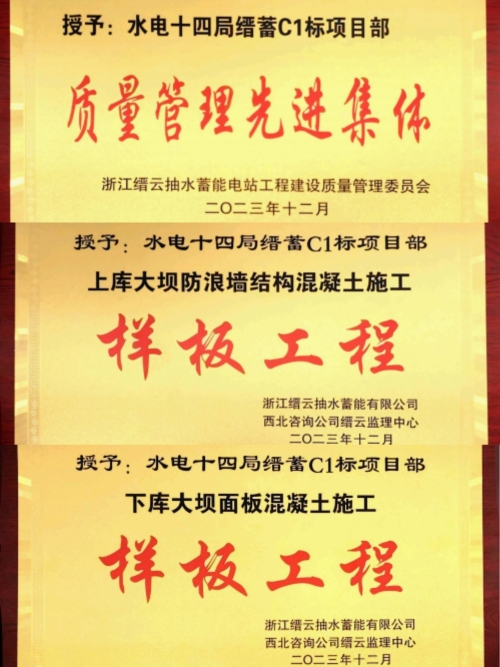 授予：水电十四局缙蓄C1标项目部
质量管理先进集体
浙江缙云抽水蓄能电站工程建设质量管理委员会
二〇二三年十二月
授予：水电十四局缙蓄C1标项目部
上库大坝防浪墙结构混凝土施工
样板工程
浙江缙云抽水蓄能有限公司
西北咨询公司缙云监理中心
二〇二三年十二月
授予：水电十四局缙蓄C1标项目部
下库大坝面板混凝土施工
样板工程
浙江缙云抽水蓄能有限公司
西北咨询公司缙云监理中心
二〇二三年十二月